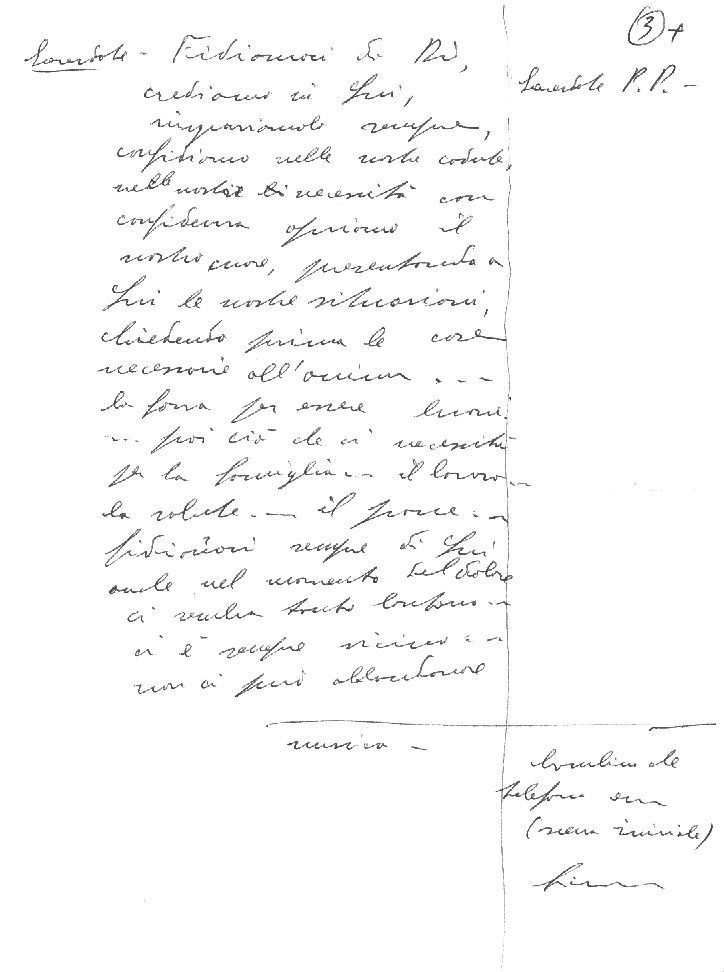 3+
Sacerdote P.P. -
Sacerdote - Fidiamoci di Dio,
crediamo in Lui,
ringraziamolo sempre,
confidiamo nelle nostre cadute,
nelle nostre necessità con
confidenza apriamo il
nostro cuore, presentando a
Lui le nostre situazioni,
chiedendo prima le cose
necessarie all'anima ...
la forza per essere buoni.
... poi ciò che ci necessita
per la famiglia... il lavoro...
la salute... il pane...
fidiamoci sempre di Lui
anche nel momento del dolore
ci sembra tanto lontano...
ci è sempre vicino...
non ci può abbandonare
musica -
bambino che
telefona
(scena iniziale)